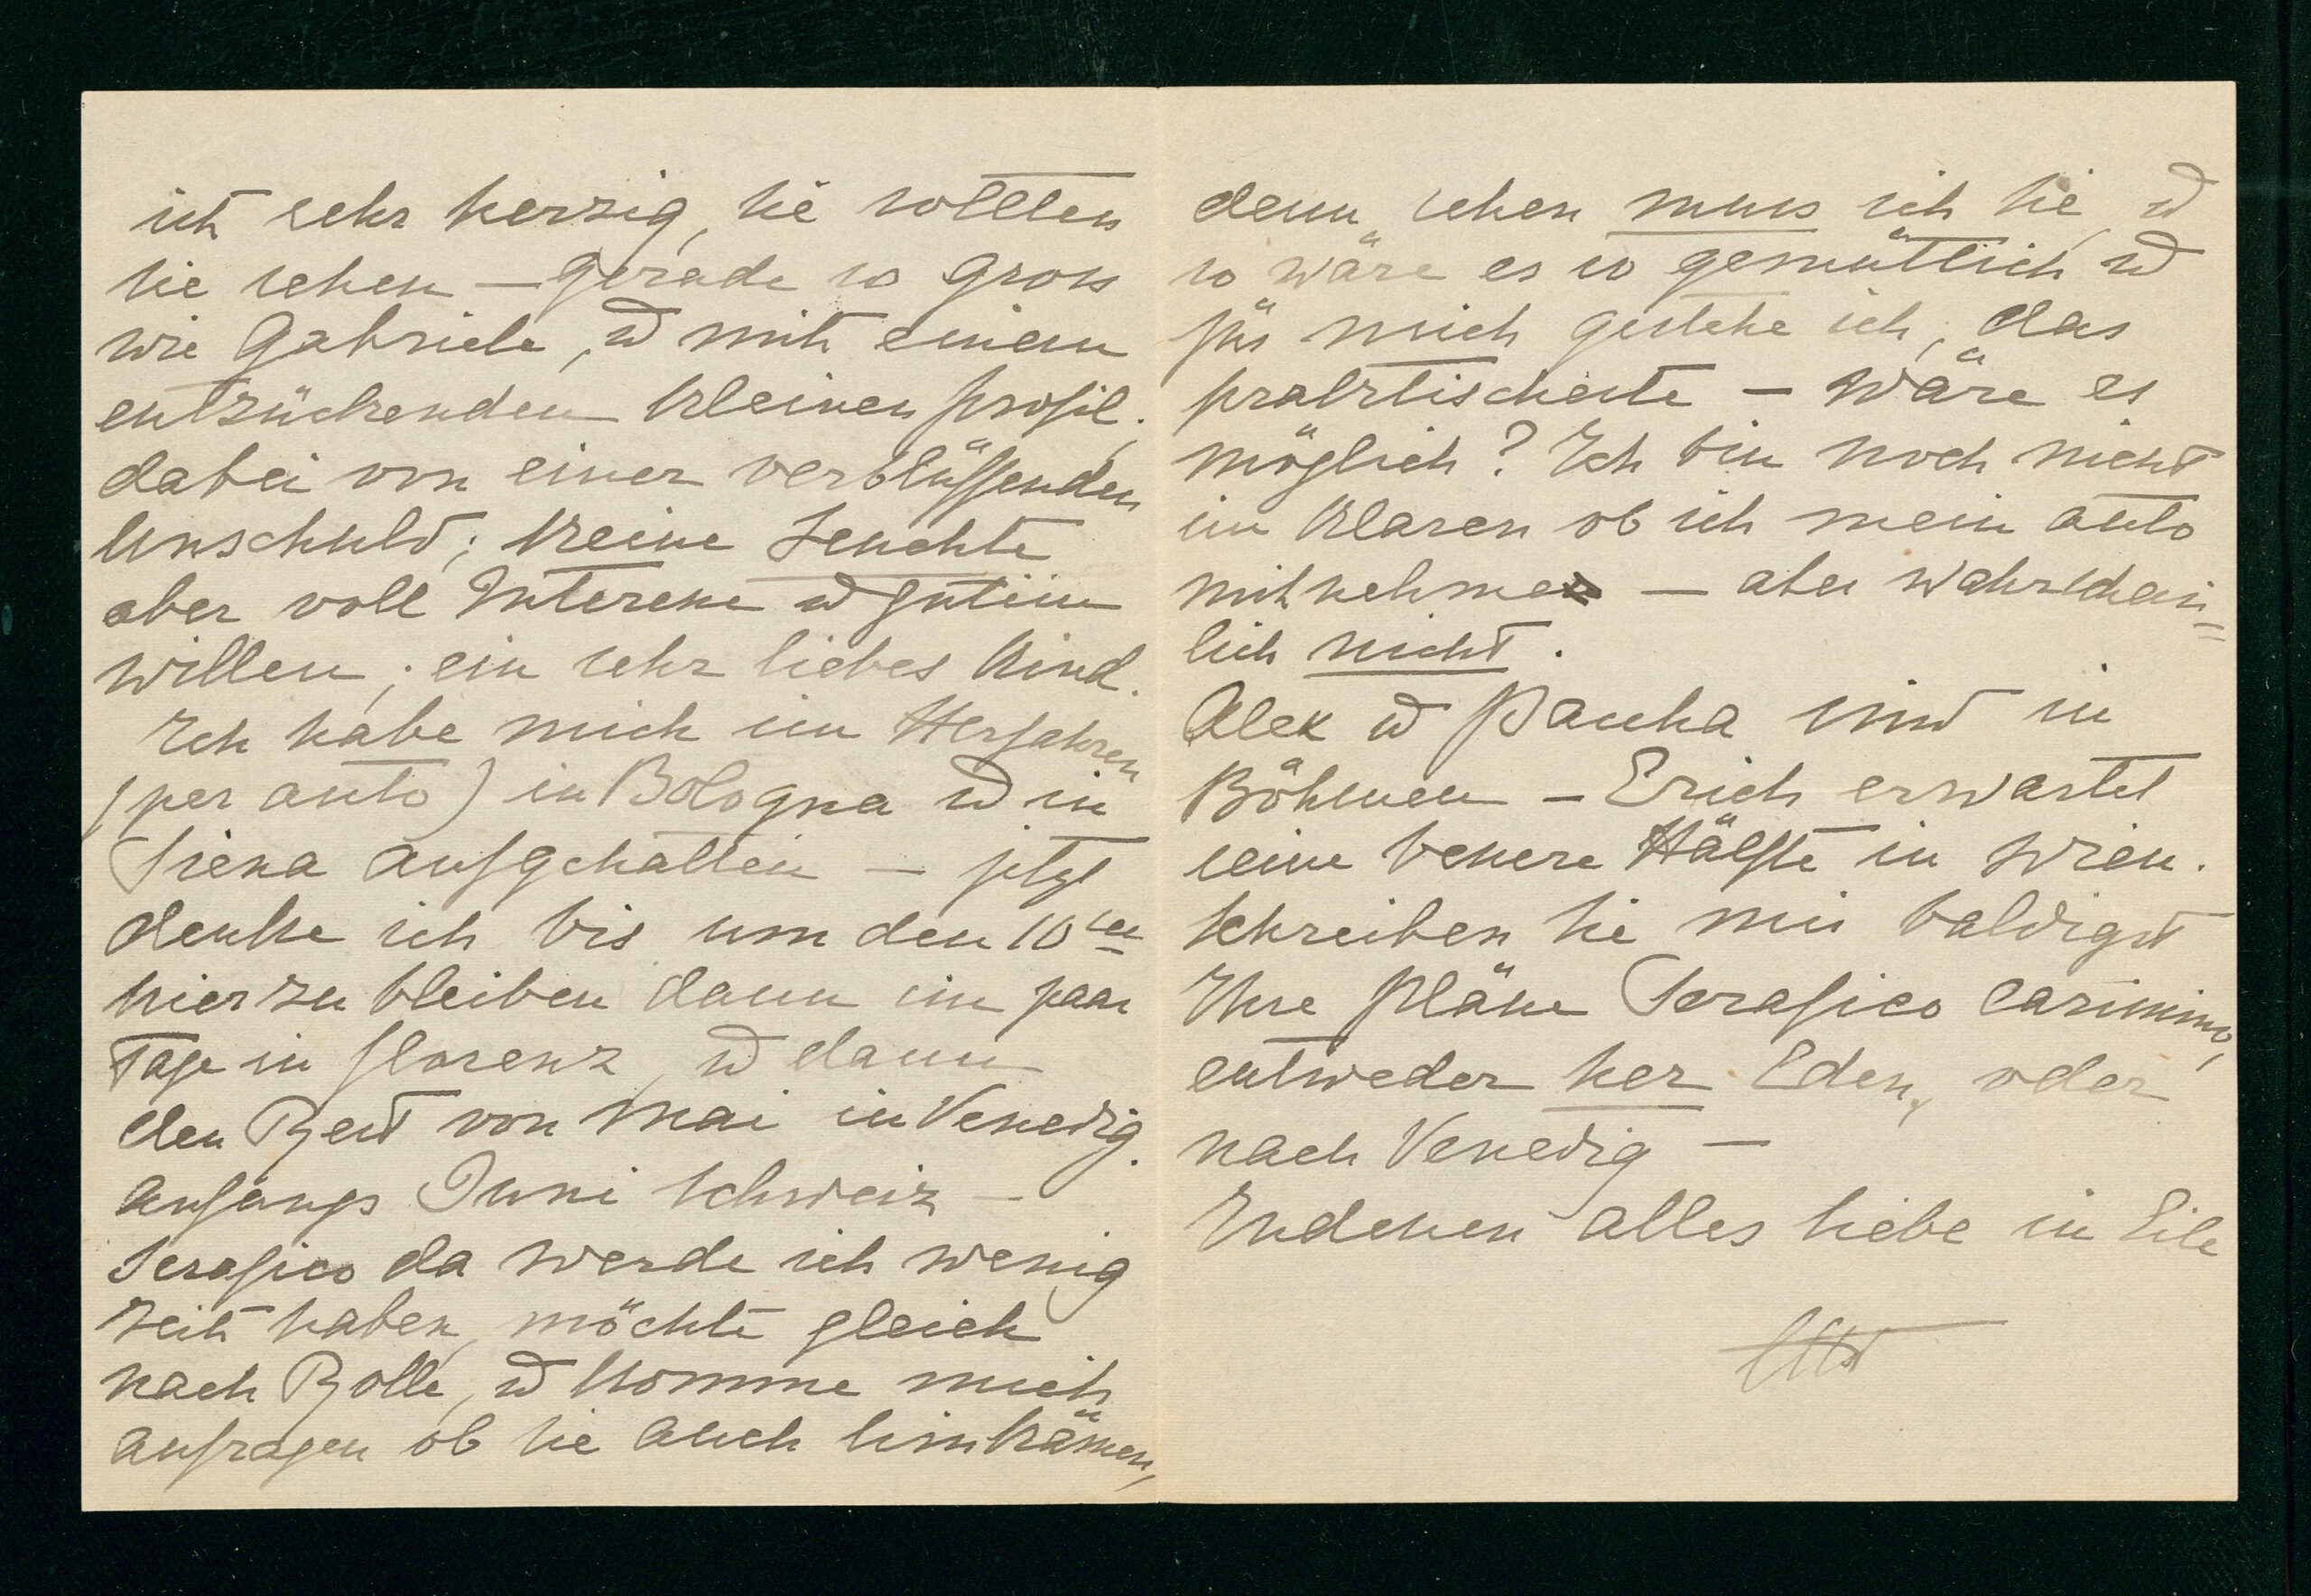 ist sehr herzig, Sie sollten
sie sehen – gerade so gross
wie Gabriele, u mit einem
entzückenden kleinen profil.
dabei von einer verblüffenden
Unschuld; keine Leuchte
aber voll Interesse u gutem
willen; ein sehr liebes Kind.
Ich habe mich im Herfahren
(per auto) in Bologna u in
Siena aufgehalten – jetzt
denke ich bis um den 10ten
hier zu bleiben dann ein paar
Tage in florenz, u dann
den Rest von Mai in Venedig.
anfangs Juni Schweiz –
Serafico da werde ich wenig
Zeit haben, möchte gleich
nach Rolle, u komme mich
anfragen ob Sie auch hinkämen,
denn sehen muss ich Sie, u
so wäre es so gemütlich u
für mich gestehe ich, das
praktischeste – wäre es
möglich? Ich bin noch nicht
im klaren ob ich mein auto
mitnehme – aber wahrschein=
lich nicht.
Alex u Pascha sind in
Böhmen – Erich erwartet
seine bessere Hälfte in Wien.
Schreiben Sie mir baldigst
Ihre Pläne Serafico carissimo,
entweder her Eden, oder
nach Venedig –
Indessen alles liebe in Eile